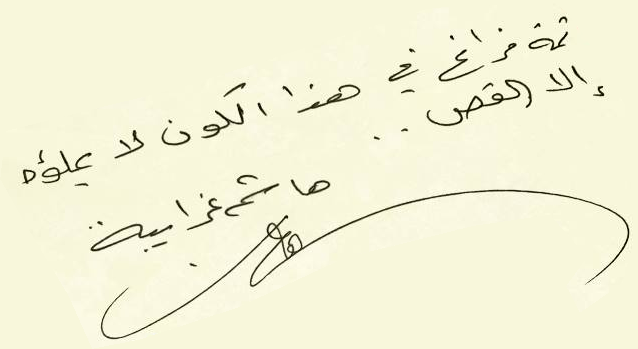 ثمة فراغ في هذا الكون لا يملؤه
إلا القص..
هاشم غرايبة